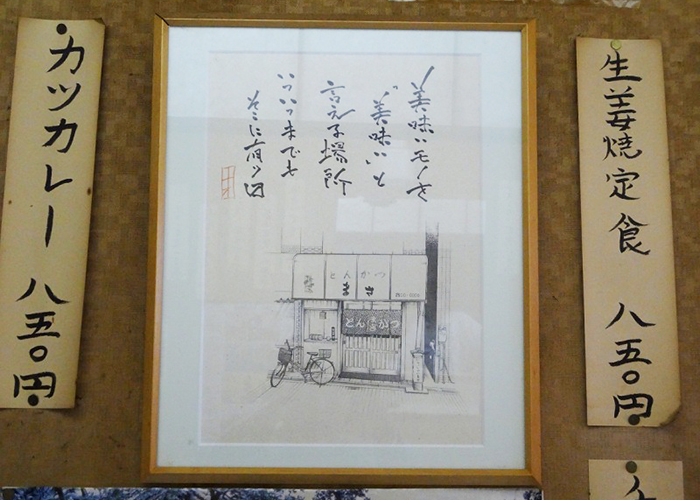 生姜焼定食 八五〇円
美味いモノを
“美味い”と
言える場所
いついつまでも
そこに有り〼
とんかつ
まさ
とんかつ
カツカレー 八五〇円